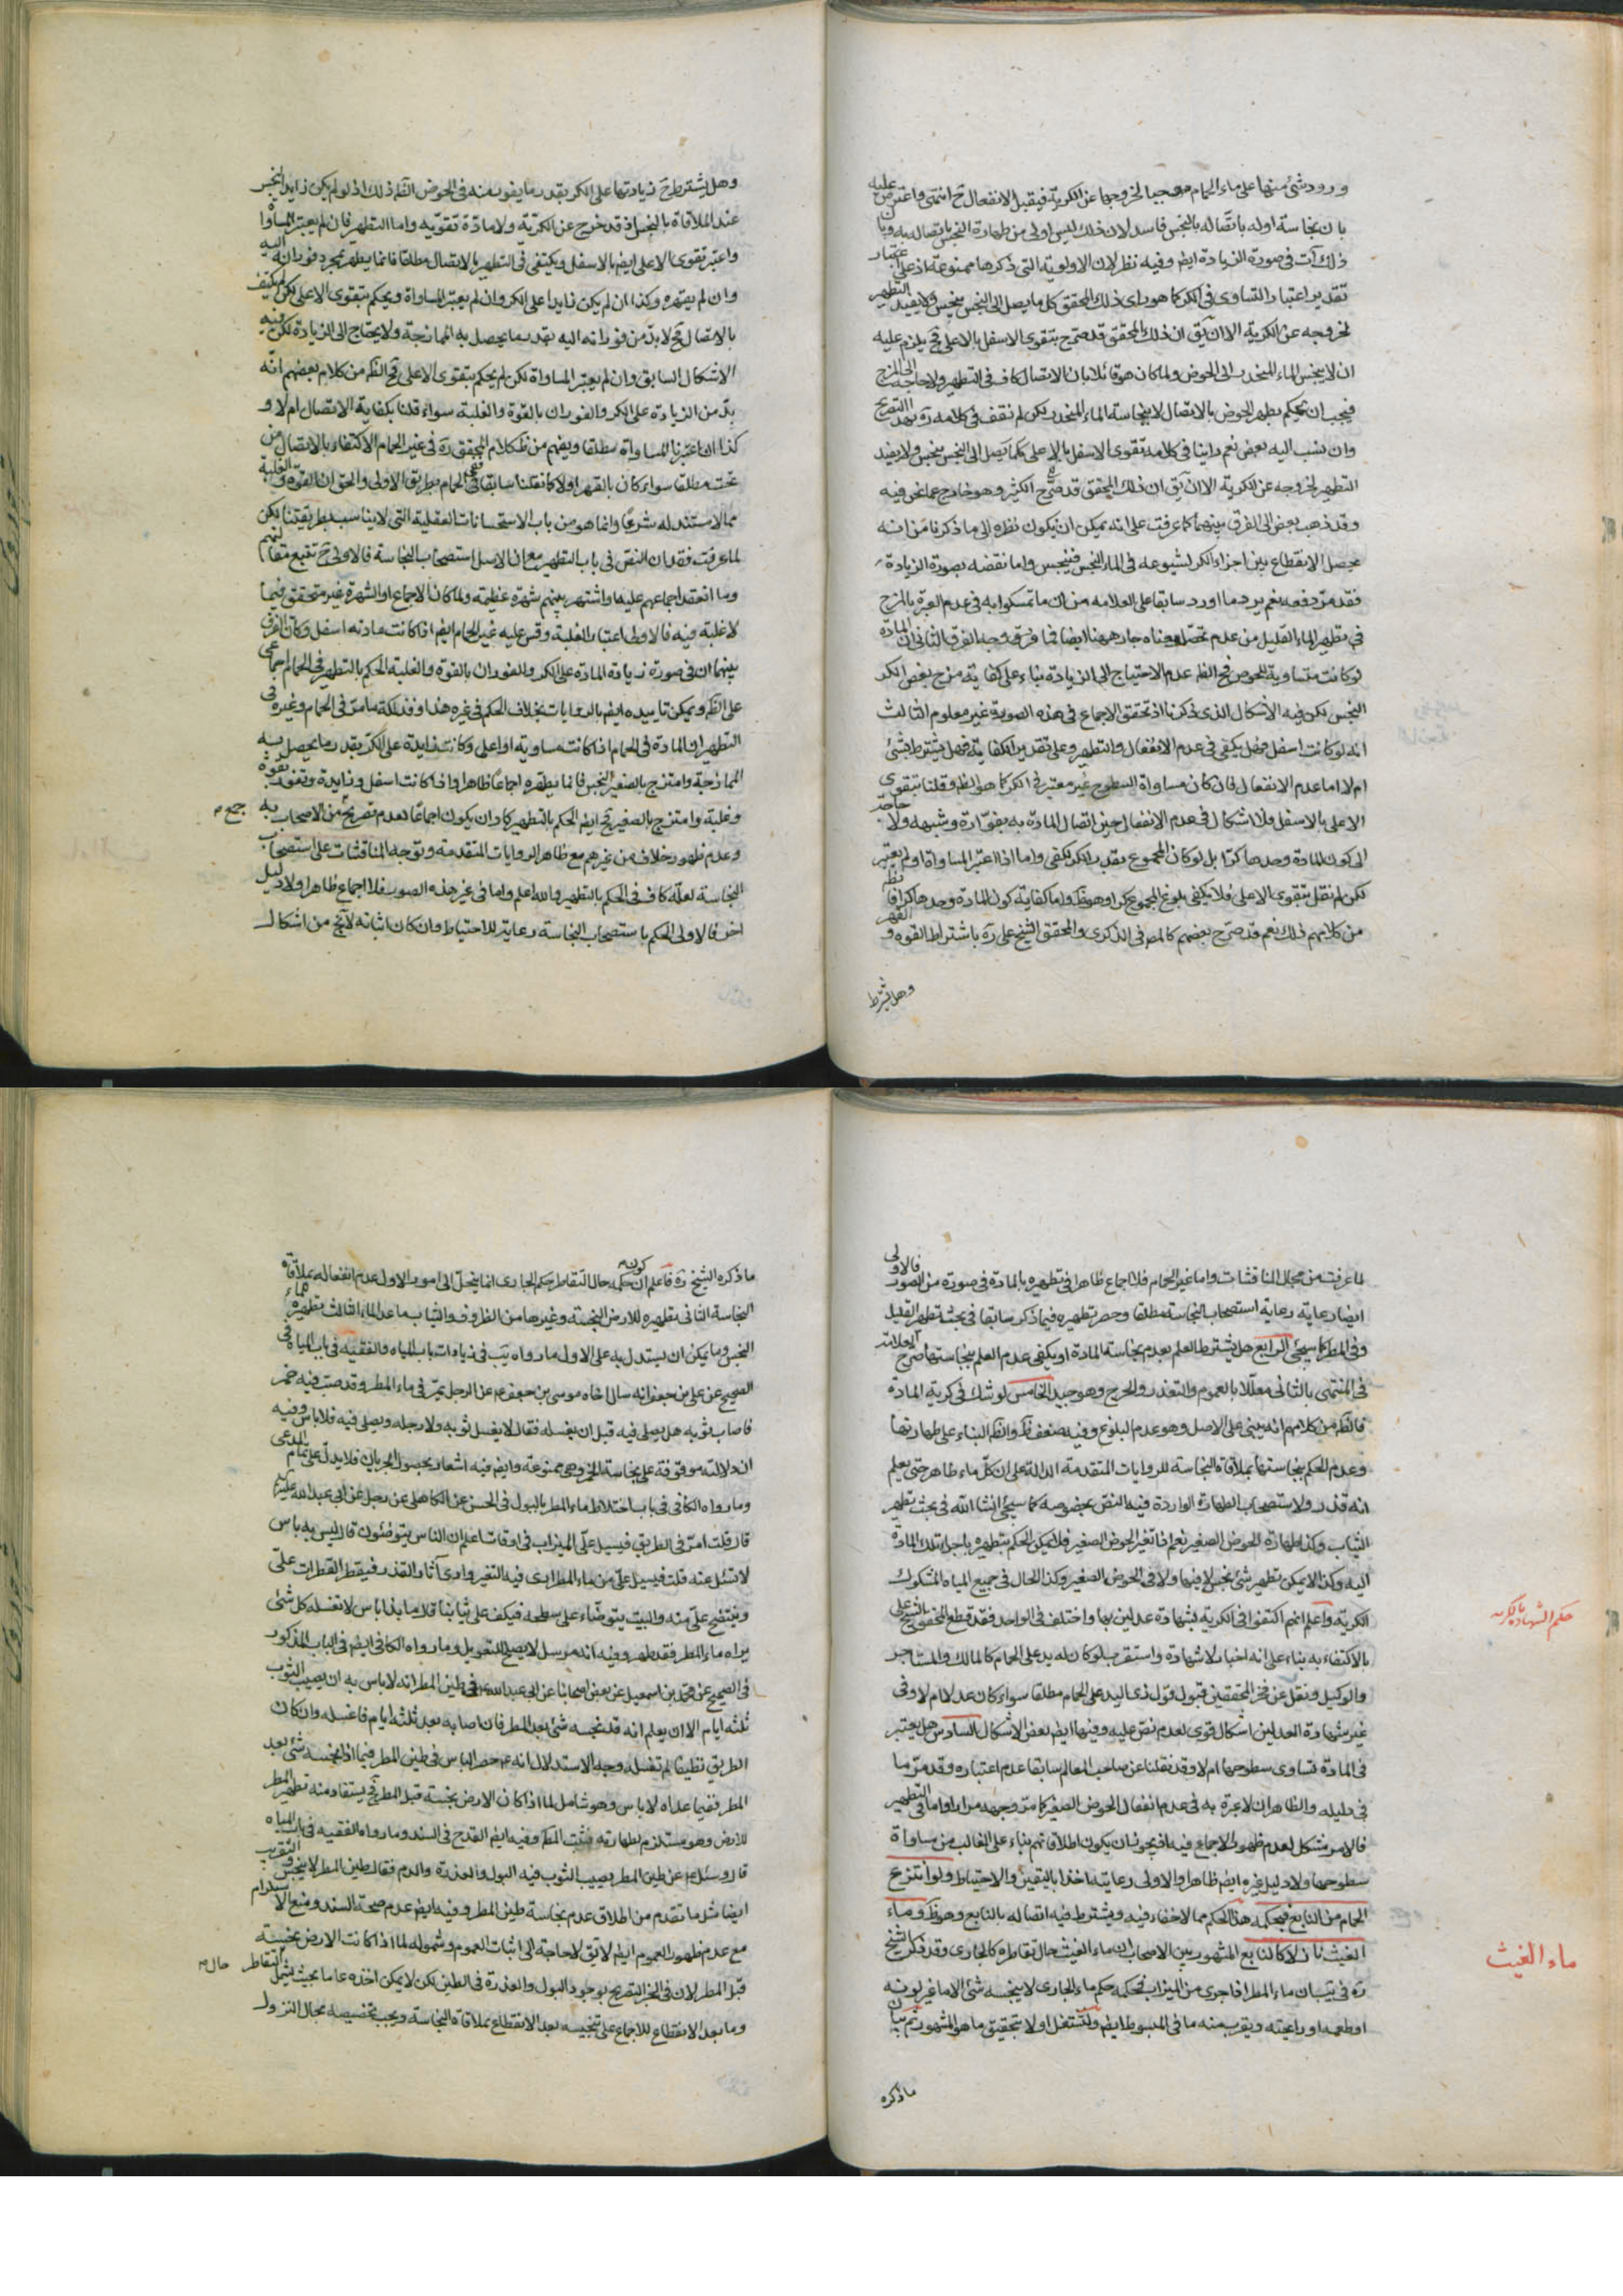 و ورود شئ منها على ماء الحمام موجبا لخروجها عن الكرية فيقبل الانفعال ح انتهى واعترض عليه
بان نجاسة اوله باتصاله بالنجس فاسد لان ذلك ليس اولى من طهارة النجس باتصاله به وبان
ذلك آت في صورة الزيادة ايض وفيه نظر لان الاولوية التي ذكرها ممنوعة اذ على اعتبار
تقدير اعتبار التساوى في الكر كما هو راى ذلك المحقق كل ما يصل الى النجس ينجس ولا يفيد التطهير
لخروجه عن الكرية الا ان يق ان ذلك المحقق قد صرح بتقوى الاسفل بالاعلى فح يلزم عليه
ان لا ينجس الماء المنحدر الى الحوض ولما كان هو قائلا بان الاتصال كاف في التطهير ولا حاجة الى المزج
فيجب ان يحكم بطهر الحوض بالاتصال لا بنجاسة الماء المنحدر لكن لم نقف في كلامه ره بهذا التصريح
وان نسب اليه بعض نعم راينا في كلامه تقوى الاسفل بالاعلى كلما يصل الى النجس ينجس ولا يفيد
التطهير لخروجه عن الكرية الا ان يق ان ذلك المحقق قد صرح الكثير وهو خارج عما نحن فيه
وقد ذهب بعض الى الفرق بينهما كما عرفت على انه يمكن ان يكون نظره الى ما ذكرنا من انه
يحصل الانقطاع بين اجزاء الكر لشيوعه في الماء النجس فينجس واما نقضه بصورة الزيادة
فقد مر دفعه نعم يرد ما اورد سابقا على العلامه من ان ما تمسكوا به في عدم العبرة بالمزج
في تطهير الماء القليل من عدم تحصل معناه جار ههنا ايضا فما فرق وجه الفرق الثاني ان المادة
لو كانت متساوية للحوض فح الظ عدم الاحتياج الى الزيادة بناء على كفاية مزج بعض الكر
النجس لكن فيه الاشكال الذى ذكرنا اذ تحقق الاجماع في هذه الصورة غير معلوم الثالث
انه لو كانت اسفل فهل يكفى في عدم الانفعال والتطهير وعلى تقدير الكفاية فهل يشترط بشئ
ام لا اما عدم الانفعال فان كان مساواة السطوح غير معتبر في الكر كما هو الظ وقلنا بتقوى
الاعلى بالاسفل فلا اشكال في عدم الانفعال حين اتصال المادة به بفوّارة وشبهه ولا حاجة
الى كون المادة وحدها كرا بل لو كان المجموع بقدر الكر لكفى واما اذا اعتبر المساواة او لم يعتبر
لكن لم نقل بتقوى الاعلى فلا يكفى بلوغ المجموع كرا وهو ظ واما كفاية كون المادة وحدها كرا فالظ
من كلامهم ذلك نعم قد صرح بعضهم كالمص في الذكرى والمحقق الشيخ على ره باشتراط القوه والقهر
وهل يشترط
وهل يشترط ح زيادتها على الكر بقدر ما يفور منه في الحوض الظ ذلك اذ لو لم يكن زايدا لنجس
عند الملاقاة بالنجس اذ قد خرج عن الكرية ولا مادة تقويه واما التطهير فان لم يعتبر المساواة
واعتبر تقوى الاعلى ايض بالاسفل ويكتفى في التطهير بالاتصال مطلقا فانما يطهر بمجرد فورانه اليه
وان لم يقهره وكذا ان لم يكن زايدا على الكر وان لم يعتبر المساواة ويحكم بتقوى الاعلى لكن لم يكتف
بالاتصال فح لا بد من فورانه اليه بقدر ما يحصل به الممازجة ولا يحتاج الى الزيادة لكن فيه
الاشكال السابق وان لم يعتبر المساواة لكن لم يحكم بتقوى الاعلى فح الظ من كلام بعضهم انه
بد من الزيادة على الكر والفوران بالقوة والغلبة سواء قلنا بكفاية الاتصال ام لا و
كذا اذا اعتبرنا المساواة مطلقا ويفهم من ظ كلام المحقق ره في غير الحمام الاكتفاء بالاتصال من
تحت مطلقا سواء كان بالقهر او لا كما نقلنا سابقا ففى الحمام بطريق الاولى والحق ان القوة والغلبة
مما لا مستند له شرعيا وانما هو من باب الاستحسانات العقلية التى لا يناسب بطريقتنا لكن
لما عرفت فقدان النص في باب التطهير مع ان الاصل استصحاب النجاسة فالاولى ح تتبع مقالتهم
وما انعقد اجماعهم عليها واشتهر بينهم شهرة عظيمة ولما كان الاجماع او الشهرة غير متحقق فيما
لا غلبة فيه فالاولى اعتبار الغلبة وقس عليه غير الحمام ايض اذا كانت مادته اسفل وكان الفرق
بينهما ان في صورة زيادة المادة على الكر والفوران بالقوة والغلبة الحكم بالتطهير في الحمام اجماعى
على الظ ويمكن تاييده ايض بالروايات بخلاف الحكم في غيره هذا وفذلكة ما مر في الحمام وغيره في
التطهير ان المادة في الحمام اذا كانت مساوية او اعلى وكانت زايدة على الكر بقدر ما يحصل به
الممازجة وامتزج بالصغير النجس فانما يطهره اجماعا ظاهرا واذا كانت اسفل وزايدة وتفور بقوة
وغلبة وامتزج بالصغير فح ايض الحكم بالتطهير كاد ان يكون اجماعا لعدم تصريح من الاصحاب به
جمع م
وعدم ظهور خلاف من غيرهم مع ظاهر الروايات المتقدمة وتوجه المناقشات على استصحاب
النجاسة لعله كاف في الحكم بالتطهير والله اعلم واما في غير هذه الصور فلا اجماع ظاهرا ولا دليل
اخر فالاولى الحكم باستصحاب النجاسة رعاية للاحتياط وان كان اثباته لا يخ من اشكال
لما عرفت من مجال المناقشات واما غير الحمام فلا اجماع ظاهرا في تطهيره بالمادة في صورة من الصور فالاولى
ايضا رعاية رعاية استصحاب النجاسة مطلقا وحصر تطهيره فيما ذكر سابقا في بحث تطهر القليل
وفى المطر كما سيجئ الرابع هل يشترط العلم بعدم نجاسة المادة او يكفى عدم العلم بنجاستها صرح العلامة
في المنتهى بالثانى معللا بالعموم والتعذر والحرج وهو جيد الخامس لو شك في كرية المادة
فالظ من كلامهم انه يبنى على الاصل وهو عدم البلوغ وفيه ضعف ظ والظ البناء على طهارتها
وعدم الحكم بنجاستها بملاقاة النجاسة للروايات المتقدمة الدالة على ان كل ماء طاهر حتى يعلم
انه قذر ولاستصحاب الطهارة الواردة فيه النص بخصوصه كما سيجئ انشا الله في بحث تطهر
الثياب وكذا طهارة الحوض الصغير نعم اذا تغير الحوض الصغير فلا يمكن الحكم بتطهيره باجراء تلك المادة
اليه وكذا لا يمكن تطهير شئ نجس لا فيها ولا في الحوض الصغير وكذا الحال في جميع المياه المشكوك
الكرية واعلم انهم اكتفوا في الكرية بشهادة عدلين بها واختلف في الواحد فقد قطع المحقق الشيخ على
حكم الشهادة بالكرية
بالاكتفاء به بناء على انه اخبار لا شهادة واستقرب لو كان له يد على الحمام كالمالك والمستاجر
والوكيل ونقل عن فخر المحققين قبول قول ذى اليد على الحمام مطلقا سواء كان عدلا ام لا وفى
غير شهادة العدلين اشكال قوى لعدم نص عليه وفيها ايض بعض الاشكال السادس هل يعتبر
في المادة تساوى سطوحها ام لا وقد نقلنا عن صاحب المعالم سابقا عدم اعتباره وقد مر ما
في دليله والظاهر ان لا عبرة به في عدم انفعال الحوض الصغير كما مر وجهه مرارا واما في التطهير
فالامر مشكل لعدم ظهور الاجماع فيه اذ يجوز ان يكون اطلاقاتهم بناء على الغالب من مساواة
سطوحها ولا دليل غيره ايض ظاهرا والاولى رعايته اخذا باليقين والاحتياط ولو انتزع
الحمام من النابع فبحكمه هذا الحكم مما لا خفاء فيه ويشترط فيه اتصاله بالنابع وهو ظ وماء
الغيث نازلا كالنابع المشهور بين الاصحاب ان ماء الغيث حال تقاطره كالجارى وقد ذكر الشيخ
ماء الغيث
ره في يب ان ماء المطر اذا جرى من الميزاب فحكمه حكم ماء الجارى لا ينجسه شئ الا ما غير لونه
او طعمه او رائحته ويقرب منه ما في المبسوط ايض ولنشتغل اولا بتحقيق ما هو المشهور ثم بيان
ما ذكره
ما ذكره الشيخ ره فاعلم ان كون حكمه حال التقاطر حكم الجارى انما ينحل الى امور الاول عدم انفعاله بملاقاة
النجاسة الثانى تطهيره للارض النجسة وغيرها من الظروف والثياب ما عدا الماء الثالث تطهيره الماء
النجس وما يمكن ان يستدل به على الاول ما رواه يب في زيادات باب المياه والفقيه في باب المياه في
الصحيح عن على بن جعفر انه سال اخاه موسى بن جعفر ع عن الرجل يمر في ماء المطر وقد صبت فيه خمر
فاصاب ثوبه هل يصلى فيه قبل ان يغسله فقال لا يغسل ثوبه ولا رجله ويصلى فيه فلا باس وفيه
ان دلالته موقوفة على نجاسة الخمر وهى ممنوعة وايض فيه اشعار بحصول الجريان فلا يدل على تمام المدعى
وما رواه الكافى في باب اختلاط ماء المطر بالبول في الحسن عن الكاهلى عن رجل عن ابى عبد الله عليه السلام
قال قلت امر في الطريق فيسيل على الميزاب في اوقات اعلم ان الناس يتوضئون قال ليس به باس
لا تسئل عنه قلت فيسيل على من ماء المطر ارى فيه التغير وارى آثار القذر فيقطر القطرات على
وينتضح على منه والبيت يتوضاء على سطحه فيكف على ثيابنا قال ما بذا باس لا تغسله كل شئ
يراه ماء المطر فقد طهر وفيه انه مرسل لا يصلح للتعويل وما رواه الكافى ايض في الباب المذكور
في الصحيح عن محمد بن اسمعيل عن بعض اصحابنا عن ابى عبد الله ع في طين المطر انه لا باس به ان يصيب الثوب
ثلثه ايام الا ان يعلم انه قد نجسه شئ بعد المطر فان اصابه بعد ثلثه ايام فاغسله وان كان
الطريق نظيفا لم تغسله وجه الاستدلال انه ع حصر الباس في طين المطر فيما اذا نجسه شئ بعد
المطر ففيما عداه لا باس وهو شامل لما اذا كان الارض نجسة قبل المطر فح يستفاد منه تطهير المطر
للارض وهو مستلزم لطهارته فثبت المط وفيه ايض القدح في السند وما رواه الفقيه في باب المياه
قال وسئل ع عن طين المطر يصيب الثوب فيه البول والعذرة والدم فقال طين المطر لا ينجس والتقريب
ايضا مثل ما تقدم من اطلاق عدم نجاسة طين المطر وفيه ايض عدم صحة السند ومنع الاستلزام
مع عدم ظهور العموم ايض لا يق لا حاجة الى اثبات العموم وشموله لما اذا كانت الارض نجسة
قبل المطر لان في الخبر التصريح بوجود البول والعذرة في الطين لكن لا يمكن اخذه عاما بحيث يشمل التقاطر
حال م
وما بعد الانقطاع للاجماع على تنجيسه بعد الانقطاع بملاقاة النجاسة ويجب تخصيصه بحال النزول